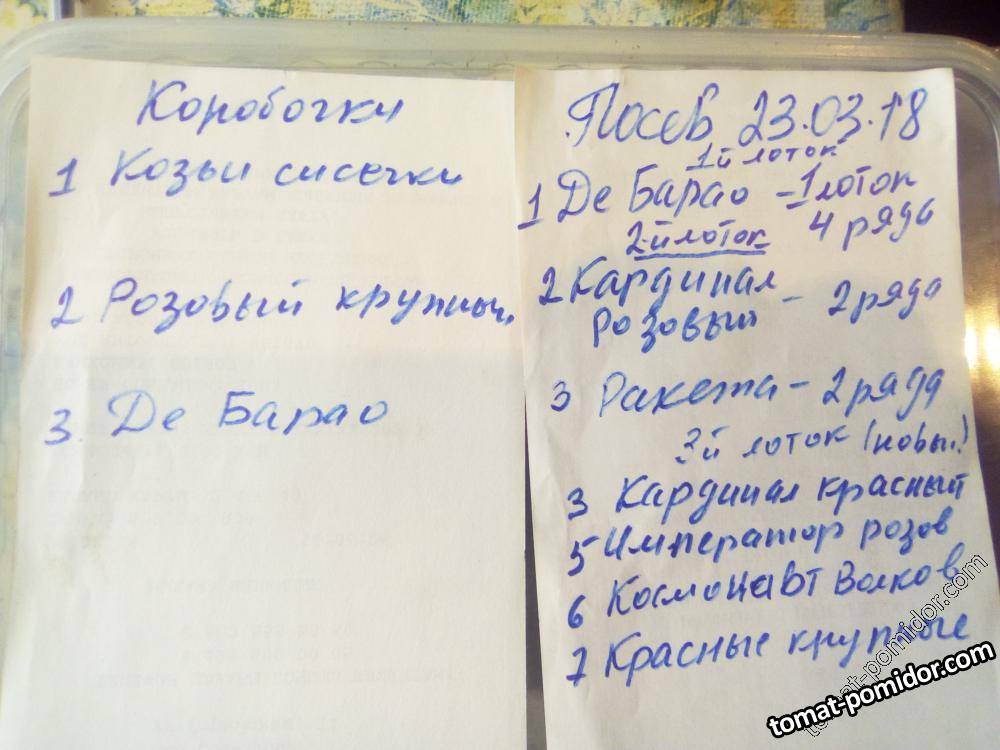 Коробочки
1 Козьи сисечки
2 Розовый крупный
3. Де Барао
Посев 23.03.18
1й лоток
1 Де Барао - 1 лоток
4 ряда
2-й лоток
2 Кардинал
розовый - 2 ряда
3 Ракета - 2 ряда
3й лоток (новый)
3 Кардинал красный
5 Император розов
6 Космонавт Волков
7 Красные крупные
tomat-pomidor.com
tomat-pomidor.com